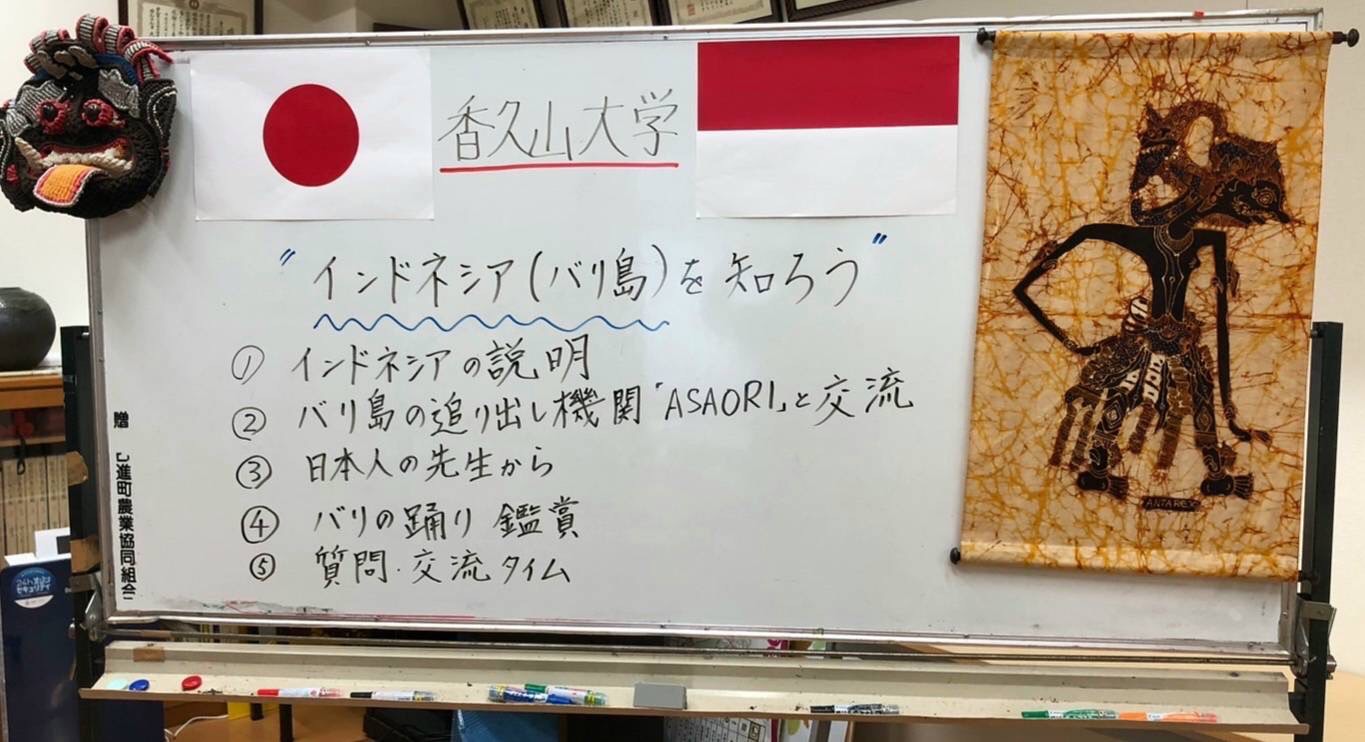 香久山大学
"インドネシア(バリ島)を知ろう"
① インドネシアの説明
② バリ島の追り出し機関「ASAORI」と交流
③ 日本人の先生から
④ バリの踊り 鑑賞
⑤ 質問・交流タイム
贈 進町農業協同組合
セキュリティ